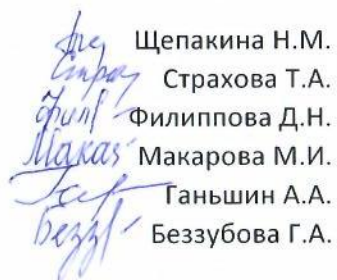 Щепакина Н.М.
Страхова Т.А.
Филиппова Д.Н.
Макарова М.И.
Ганьшин А.А.
Беззубова Г.А.